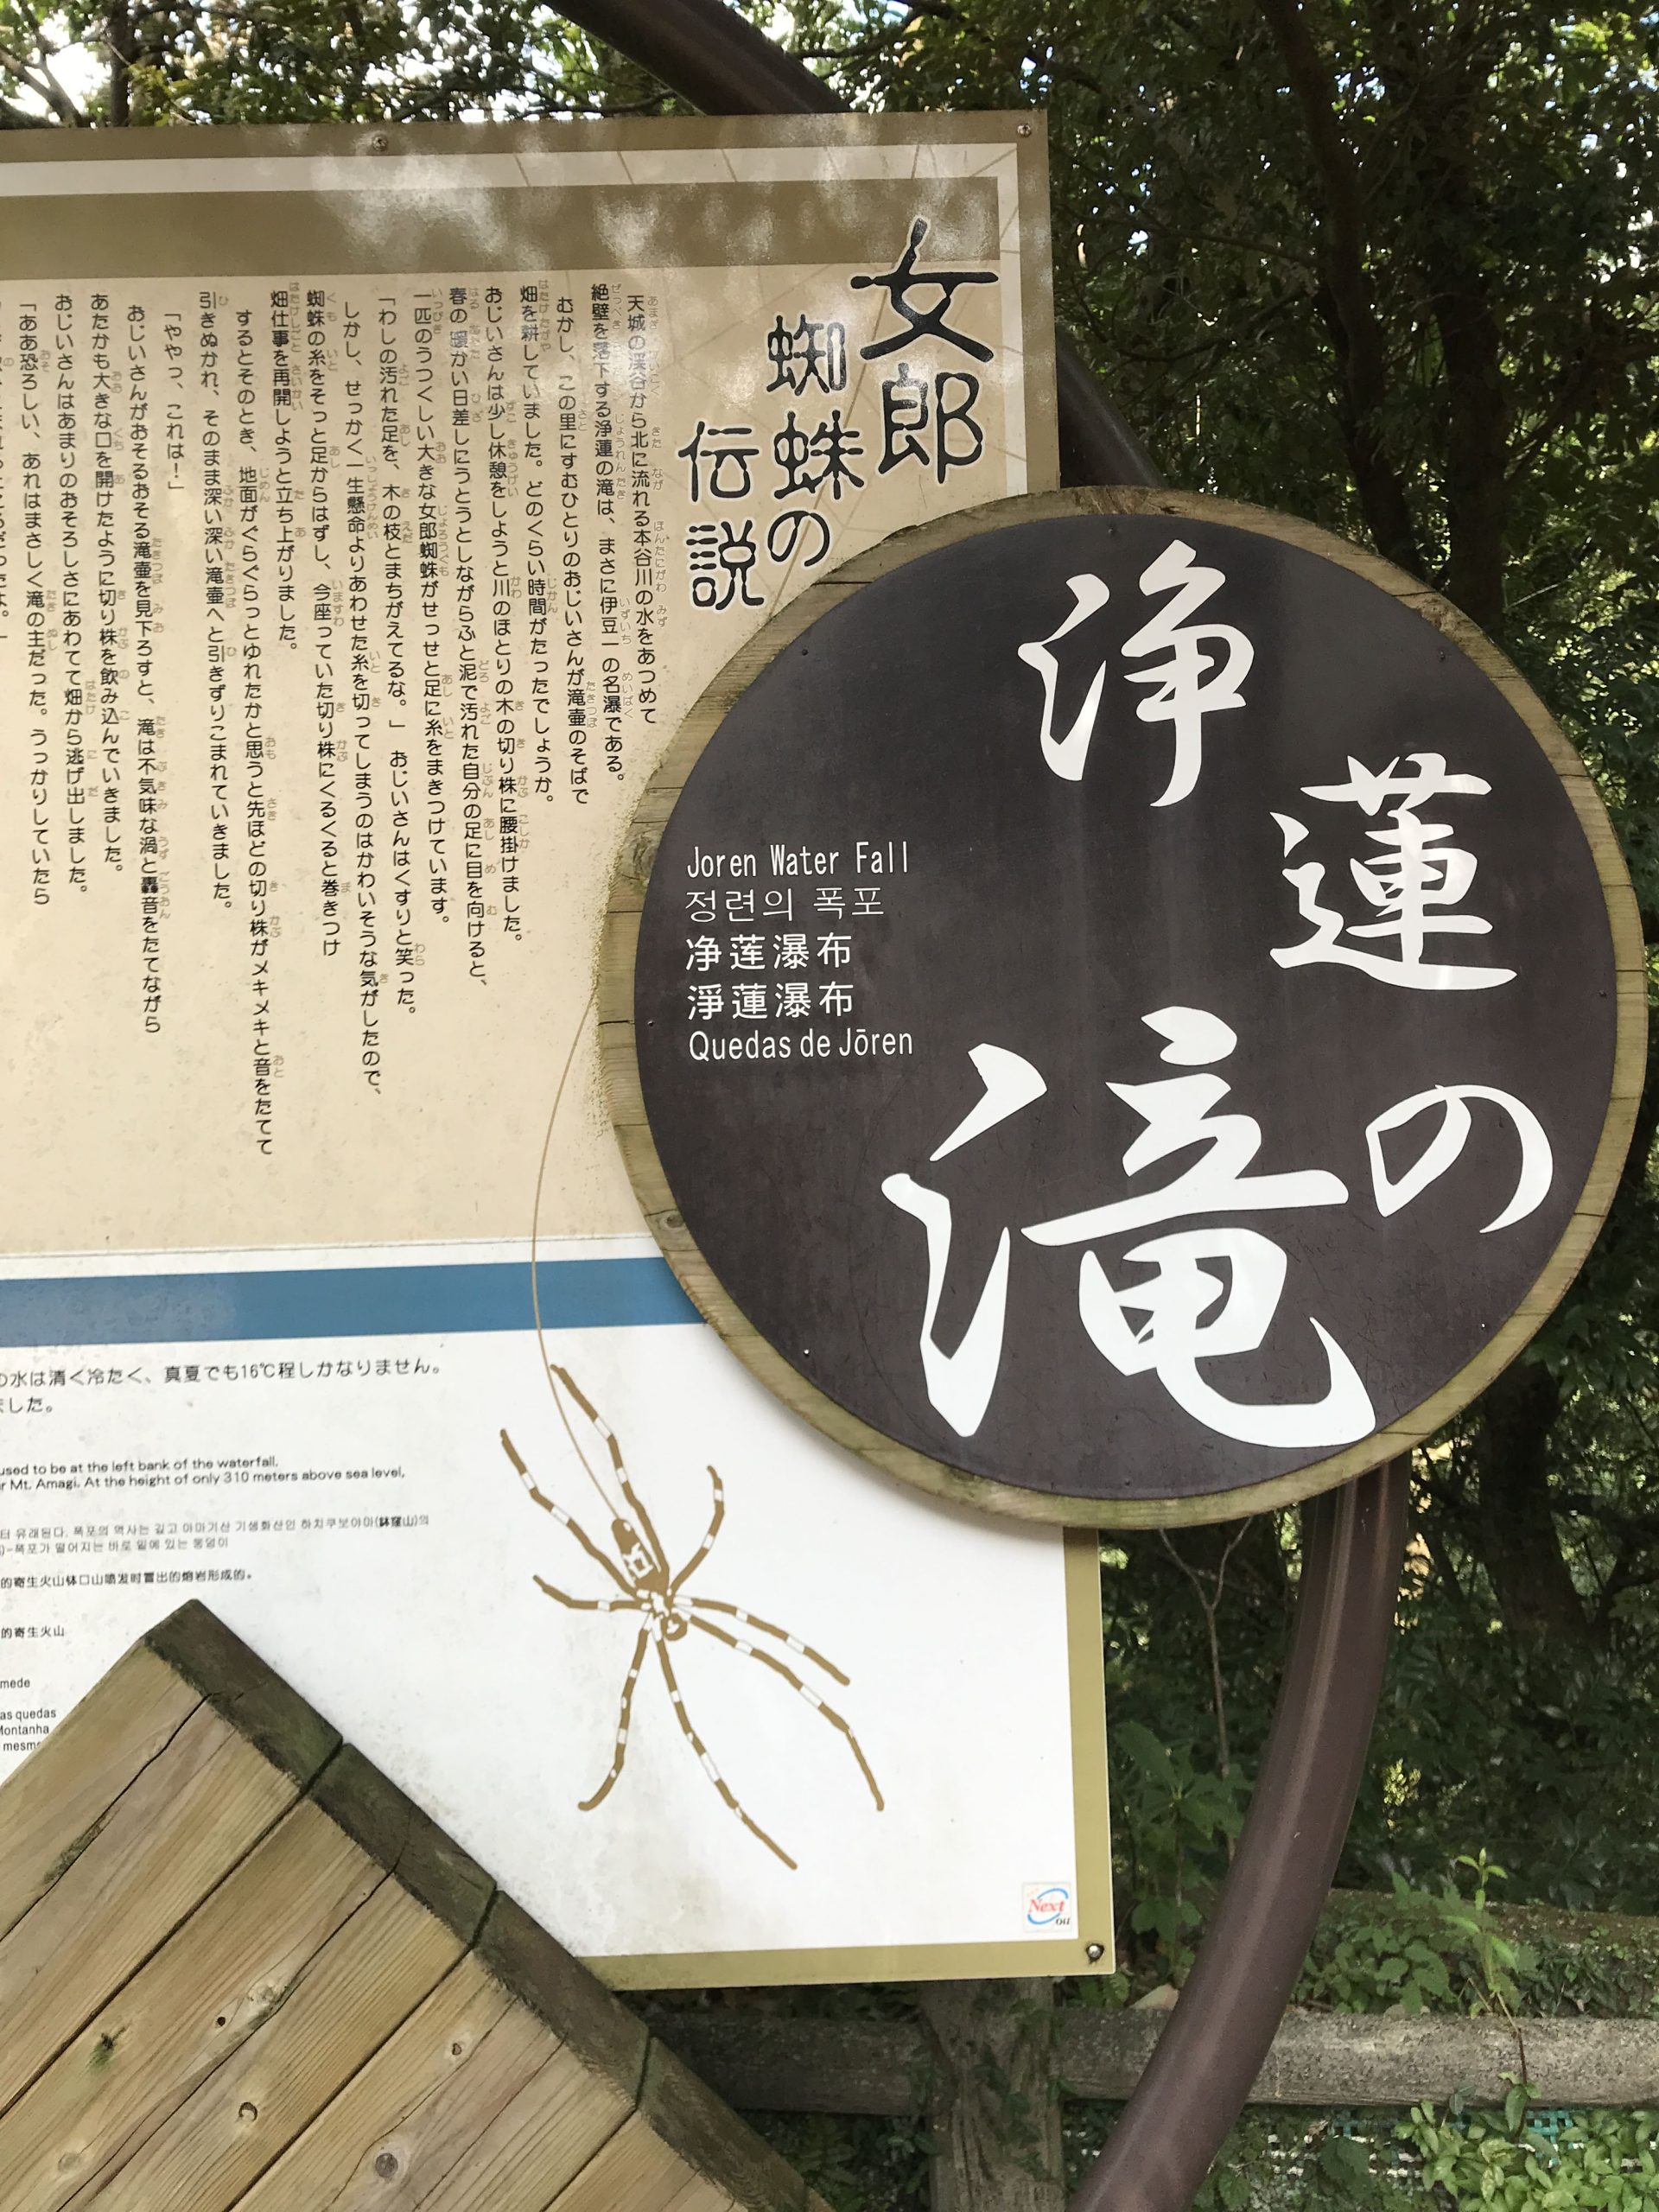 浄蓮の滝
Joren Water Fall
정련의 폭포
净莲瀑布
淨蓮瀑布
Quedas de Jōren
女郎
蜘蛛の
伝説
天城の渓谷から北に流れる本谷川の水をあつめて
絶壁を落下する浄蓮の滝は、まさに伊豆一の名瀑である。
むかし、この里にすむひとりのおじいさんが滝壷のそばで
畑を耕していました。どのくらい時間がたったでしょうか。
おじいさんは少し休憩をしようと川のほとりの木の切り株に腰掛けました。
春の暖かい日差しにうとうとしながらふと泥で汚れた自分の足に目を向けると、
一匹のうつくしい大きな女郎蜘蛛がせっせと足に糸をまきつけています。
「わしの汚れた足を、木の枝とまちがえてるな。」 おじいさんはくすりと笑った。
しかし、せっかく一生懸命よりあわせた糸を切ってしまうのはかわいそうな気がしたので、
蜘蛛の糸をそっと足からはずし、今座っていた切り株にくるくると巻きつけ
畑仕事を再開しようと立ち上がりました。
するとそのとき、地面がぐらぐらっとゆれたかと思うと先ほどの切り株がメキメキと音をたてて
引きぬかれ、そのまま深い深い滝壷へと引きずりこまれていきました。
「ややっ、これは！」
おじいさんがおそるおそる滝壷を見下ろすと、滝は不気味な渦と轟音をたてながら
あたかも大きな口を開けたように切り株を飲み込んでいきました。
おじいさんはあまりのおそろしさにあわてて畑から逃げ出しました。
「ああ恐ろしい、あれはまさしく滝の主だった。うっかりしていたら
の水は清く冷たく、真夏でも16℃程しかなりません。
ました。
used to be at the left bank of the waterfall.
r Mt. Amagi. At the height of only 310 meters above sea level,
터 유래된다. 폭포의 역사는 깊고 아마기산 기생화산인 하치쿠보야마(鉢窪山)의
)-폭포가 떨어지는 바로 밑에 있는 웅덩이
的寄生火山钵口山喷发时冒出的熔岩形成的。
的寄生火山
mede
as quedas
Montanha
mesm
Next
oil